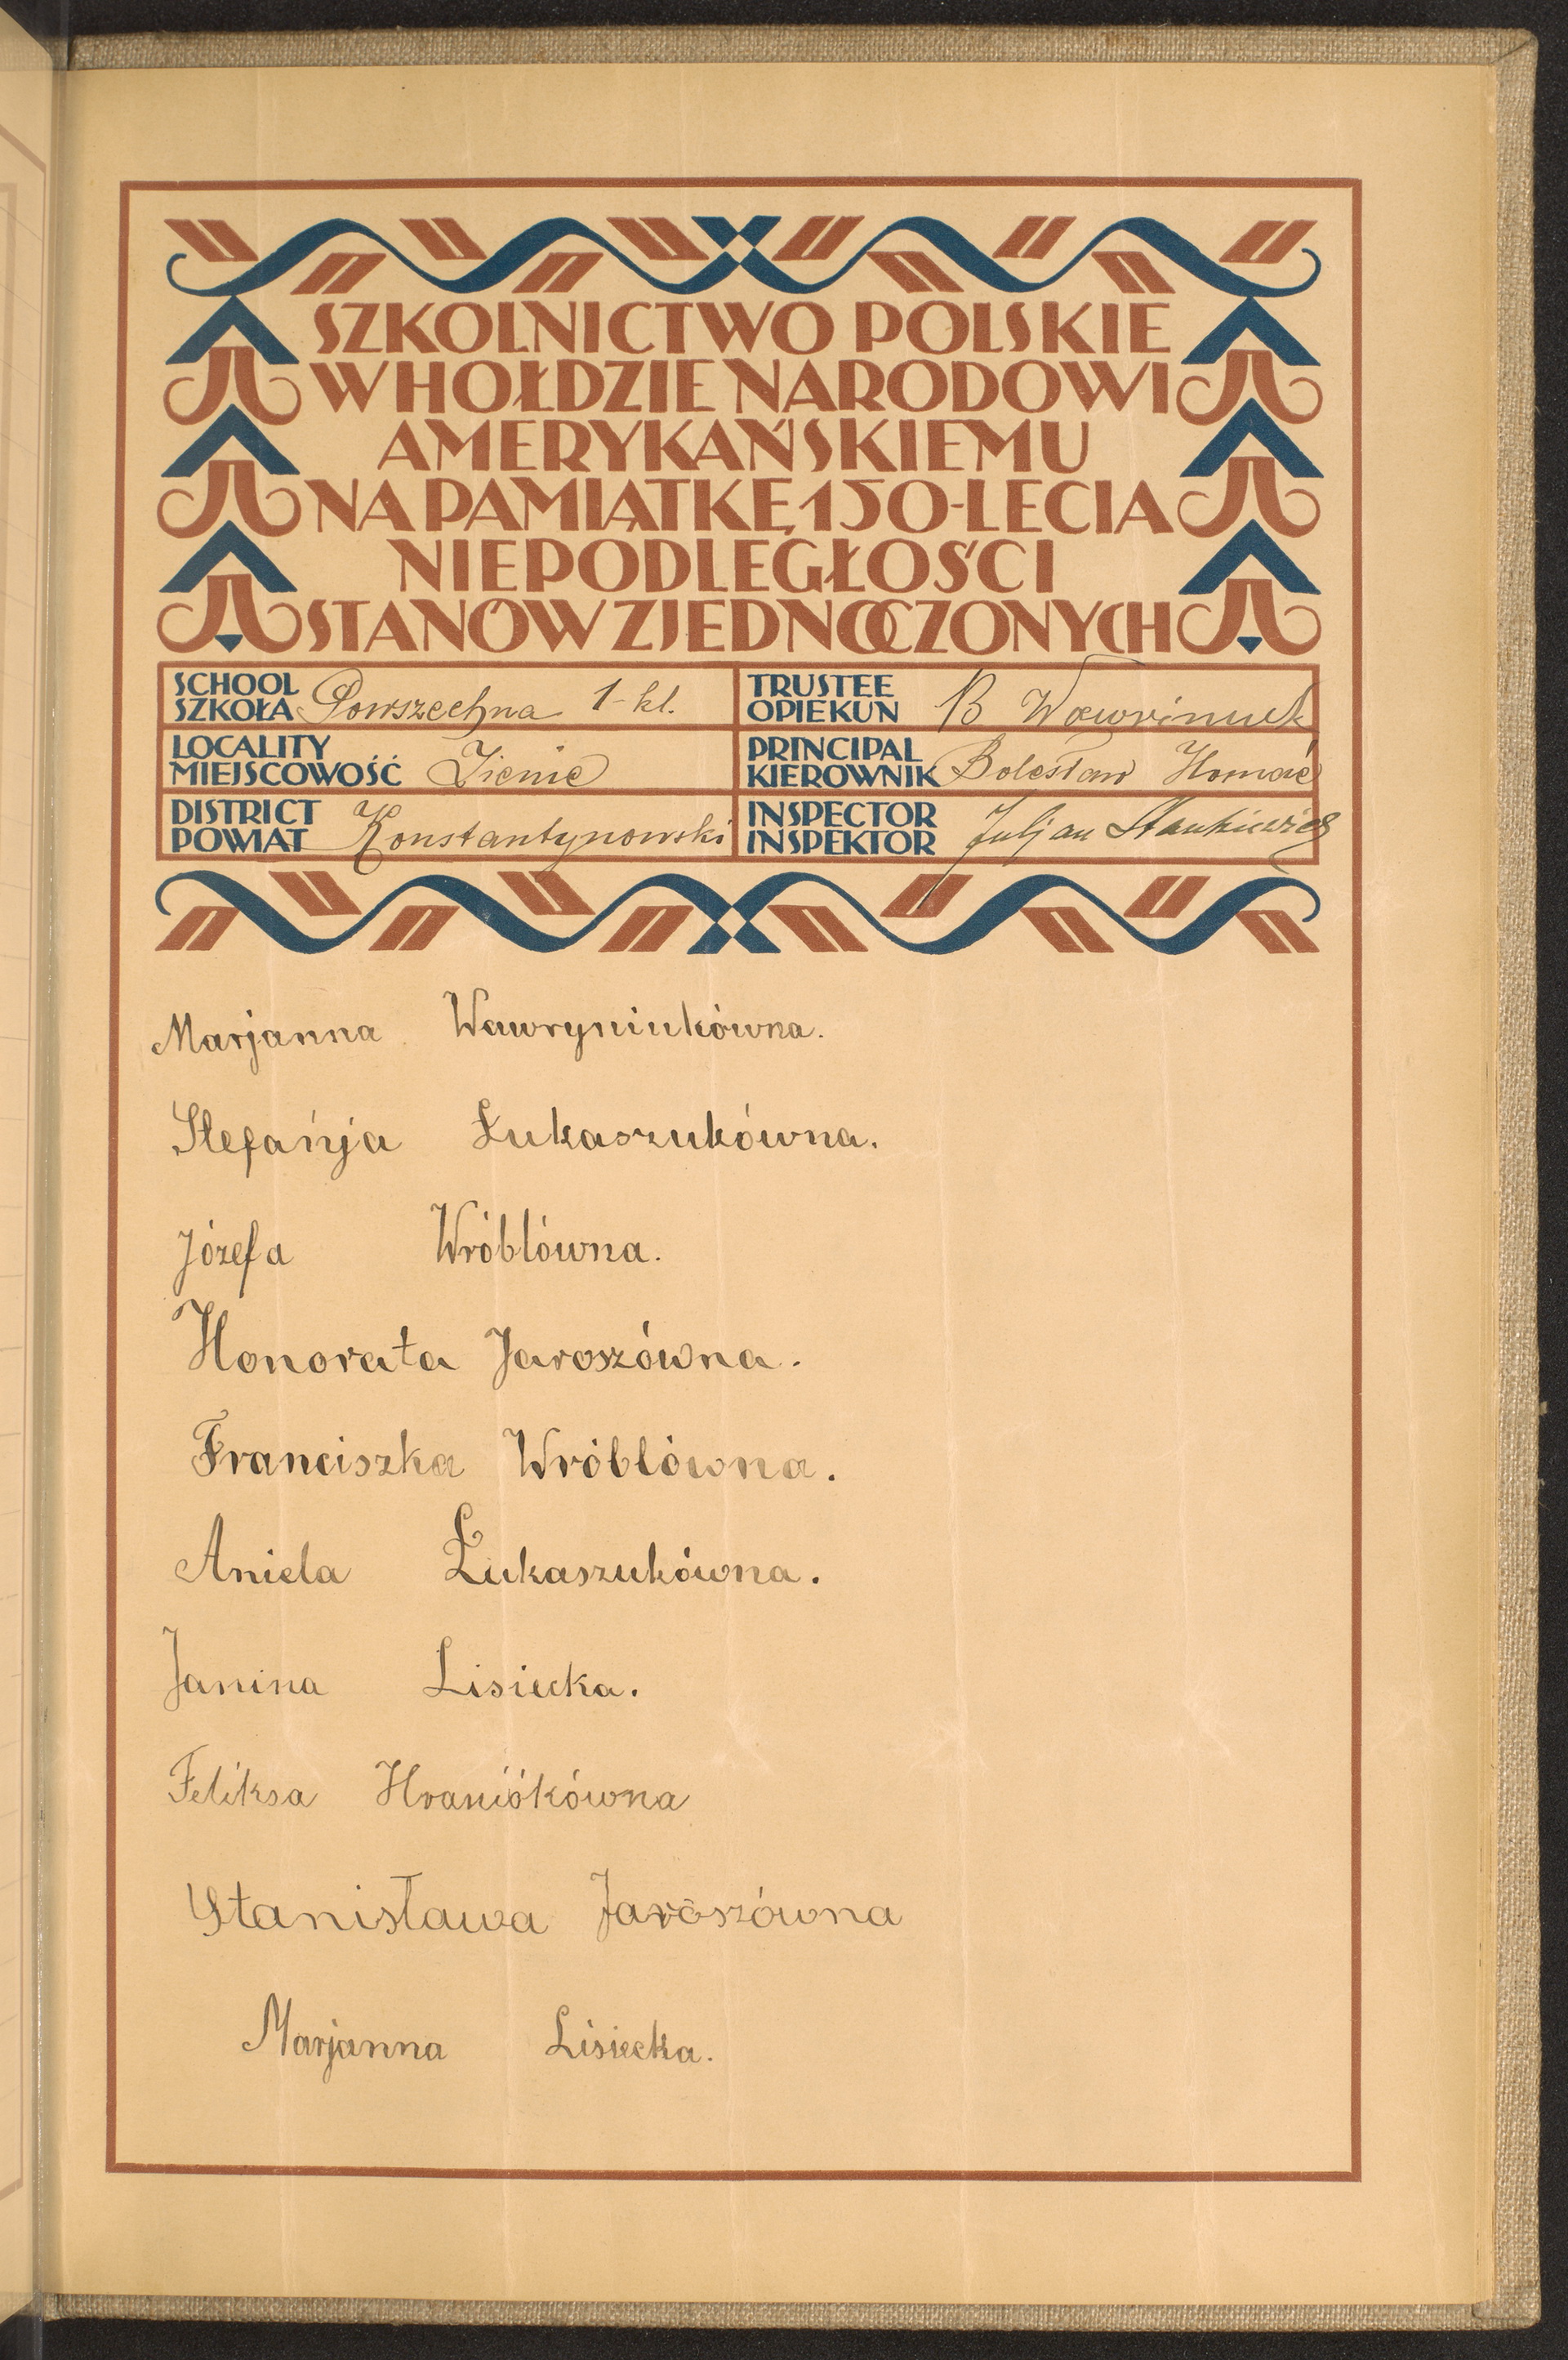 SZKOLNICTWO POLSKIE
W HOŁDZIE NARODOWI
AMERYKAŃSKIEMU
NA PAMIĄTKĘ 150-LECIA
NIEPODLEGŁOŚCI
STANÓW ZJEDNOCZONYCH
SCHOOL
SZKOŁA Powszechna 1-kl.
TRUSTEE
OPIEKUN B Wawriniuk
LOCALITY
MIEJSCOWOŚĆ Zienie
PRINCIPAL
KIEROWNIK Bolesław
DISTRICT
POWIAT Konstantynowski
INSPECTOR
INSPEKTOR Juljan Stankiewicz
Marjanna Wawryniukówna.
Stefańja Łukaszukówna.
Józefa Wróblówna.
Honorata Jaroszówna.
Franciszka Wróblówna.
Aniela Łukaszukówna.
Janina Lisiecka.
Feliksa Hraniókówna
Stanisława Jaroszówna
Marjanna Lisiecka.